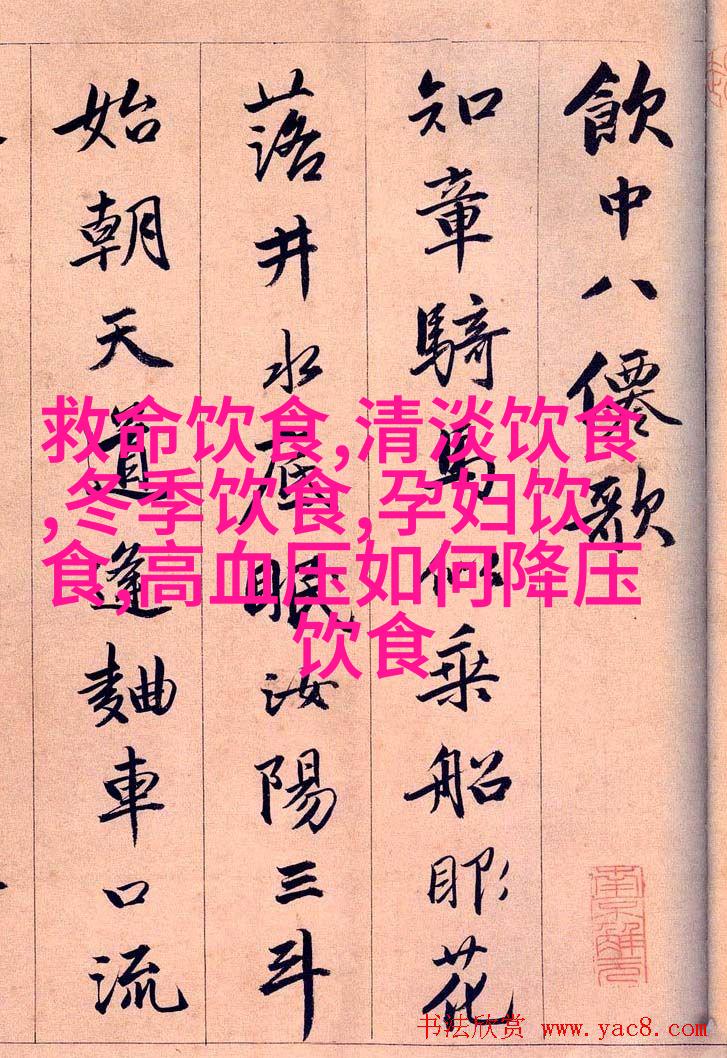 飲中八僊歌
知章騎馬似乘船眼花
落井水底眠汝陽三斗
始朝天道逢麯車口流
救命饮食,清淡饮食
,冬季饮食,孕妇饮
食,高血压如何降压
饮食
南京解元
书法欣赏 www.yac8.com